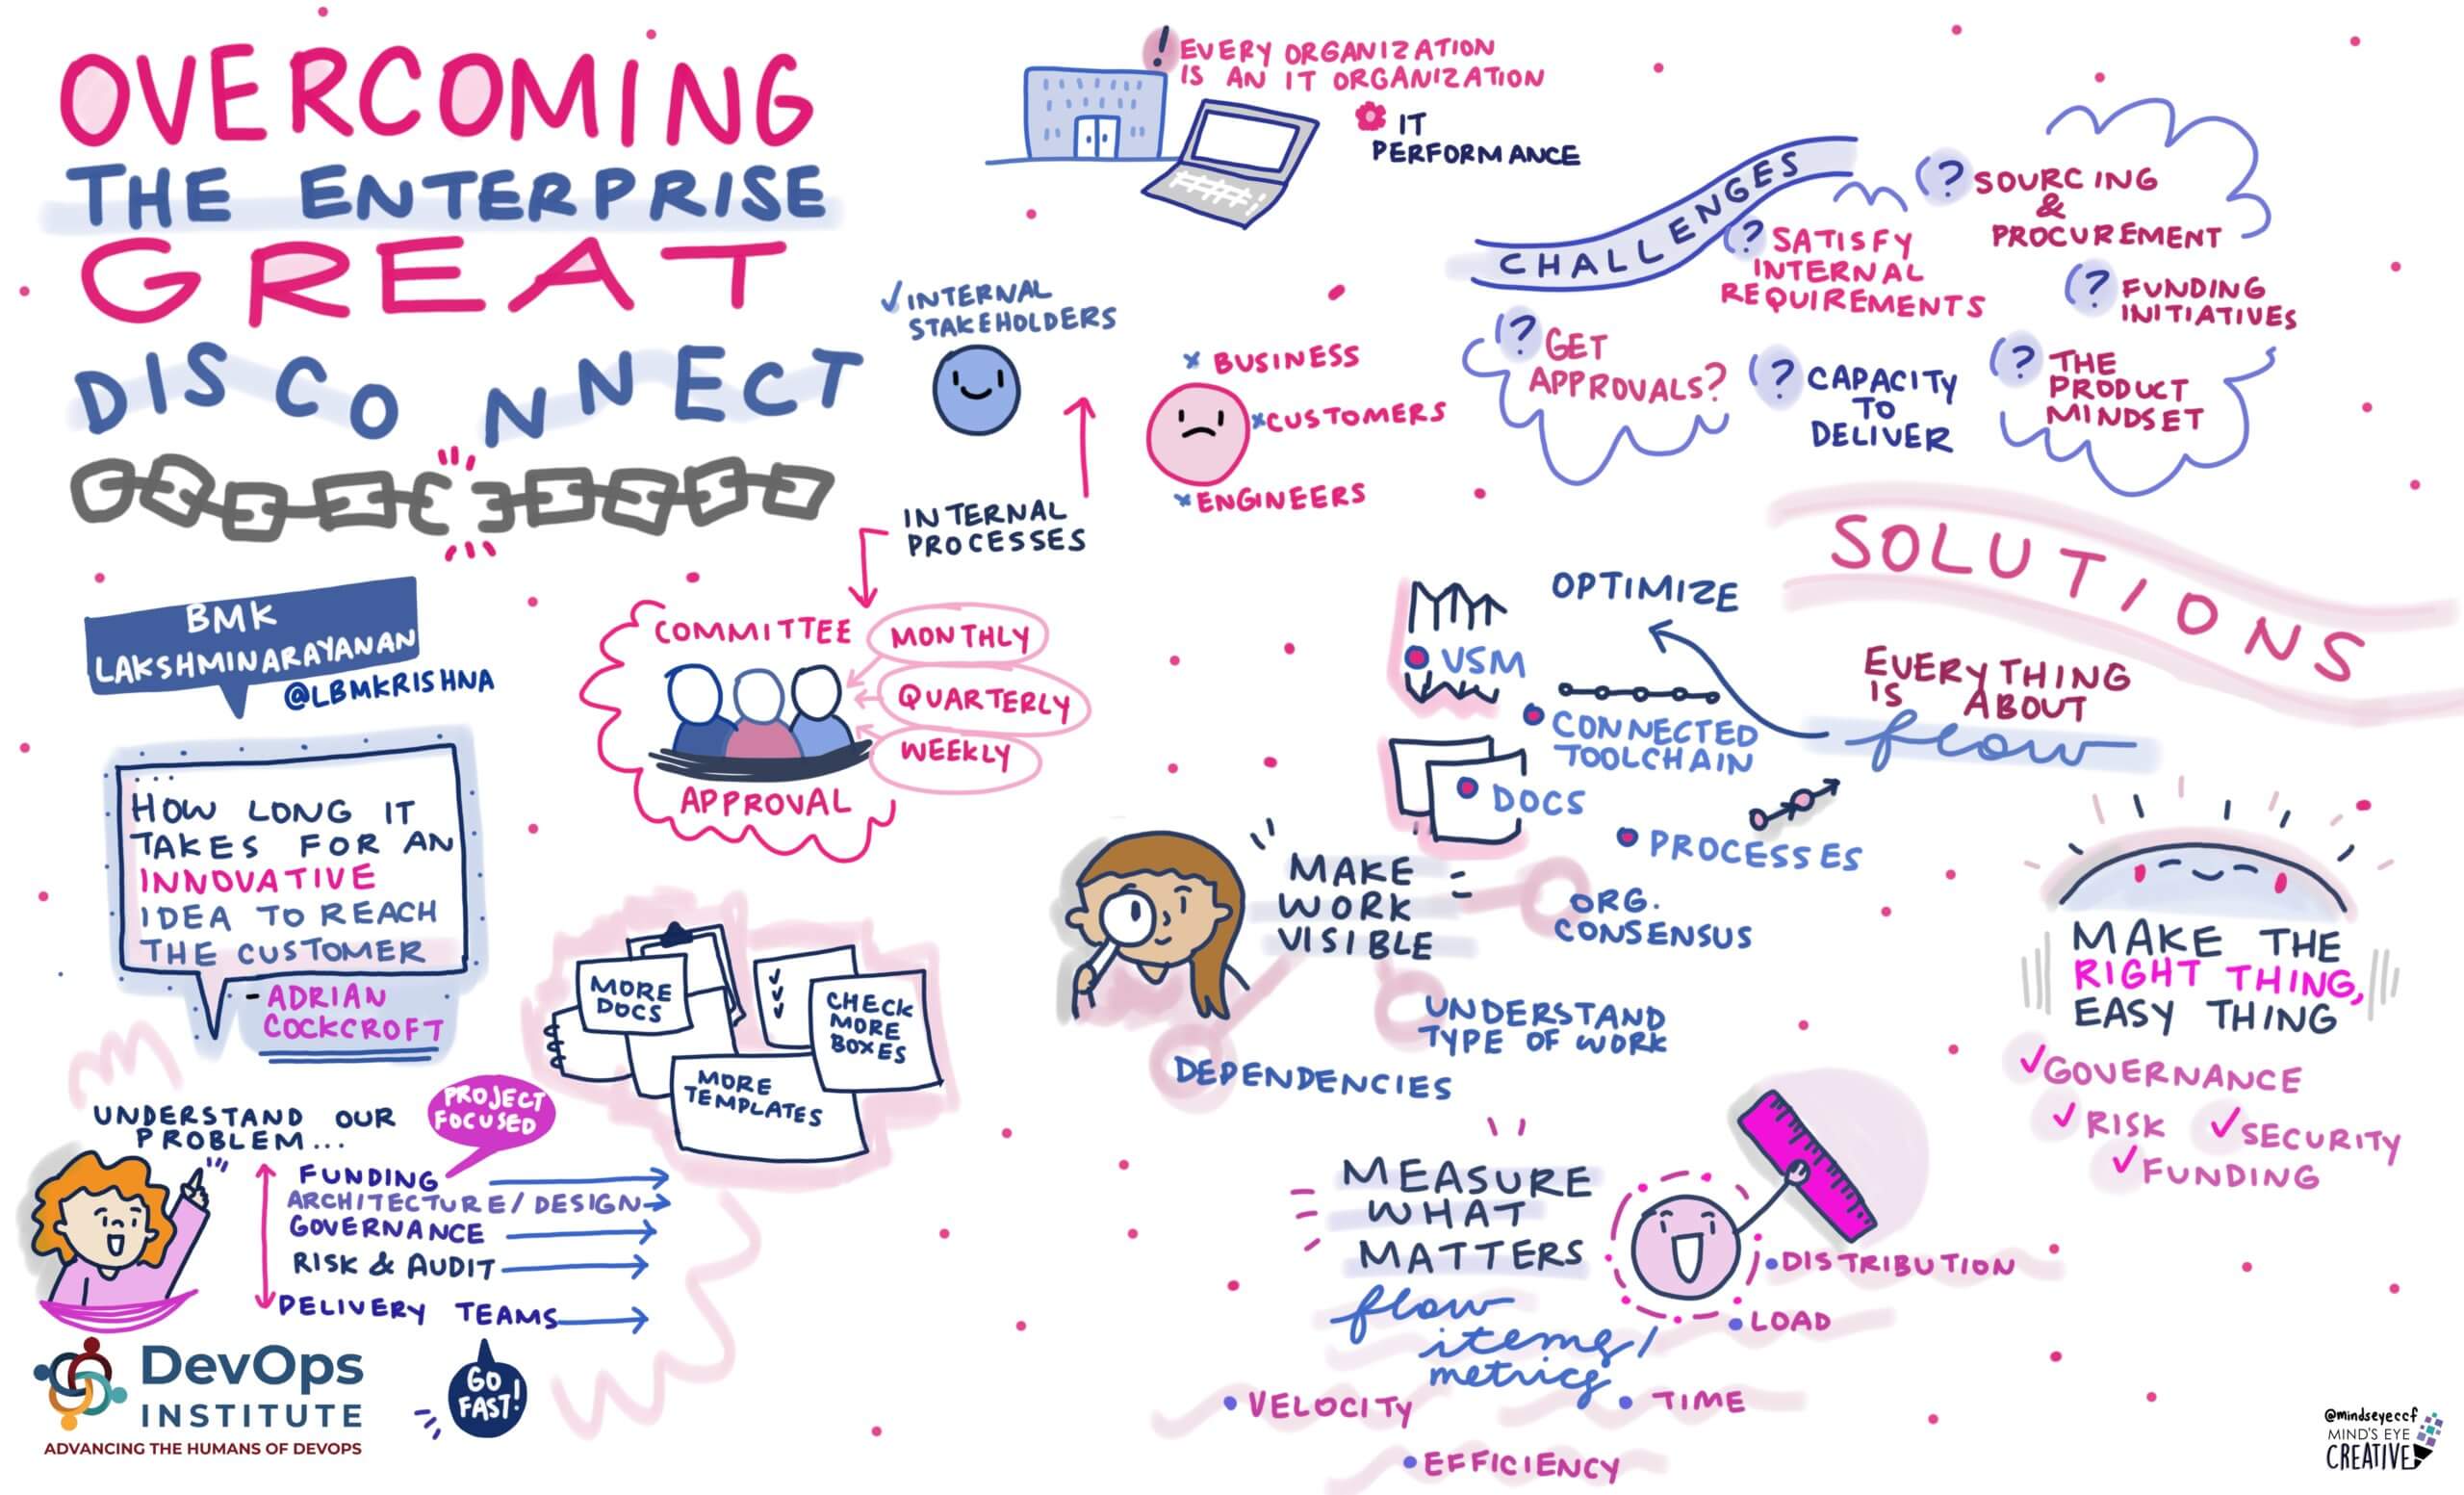 OVERCOMING
THE ENTERPRISE
GREAT
DISCONNECT
BMK
LAKSHMINARAYANAN
@LBMKRISHNA
HOW LONG IT
TAKES FOR AN
INNOVATIVE
IDEA TO REACH
THE CUSTOMER
- ADRIAN
COCKCROFT
UNDERSTAND OUR
PROBLEM...
PROJECT
FOCUSED
FUNDING
ARCHITECTURE/DESIGN
GOVERNANCE
RISK & AUDIT
DELIVERY TEAMS
GO
FAST!
DevOps
INSTITUTE
ADVANCING THE HUMANS OF DEVOPS
! EVERY ORGANIZATION
IS AN IT ORGANIZATION
IT
PERFORMANCE
✓ INTERNAL
STAKEHOLDERS
x BUSINESS
x CUSTOMERS
x ENGINEERS
INTERNAL
PROCESSES
COMMITTEE
MONTHLY
QUARTERLY
WEEKLY
APPROVAL
MORE
DOCS
CHECK
MORE
BOXES
MORE
TEMPLATES
CHALLENGES
? SOURCING
&
PROCUREMENT
? SATISFY
INTERNAL
REQUIREMENTS
? FUNDING
INITIATIVES
? GET
APPROVALS?
? CAPACITY
TO
DELIVER
? THE
PRODUCT
MINDSET
SOLUTIONS
EVERYTHING
IS ABOUT
flow
OPTIMIZE
VSM
CONNECTED
TOOLCHAIN
DOCS
PROCESSES
MAKE
WORK
VISIBLE
ORG.
CONSENSUS
UNDERSTAND
TYPE OF WORK
DEPENDENCIES
MAKE THE
RIGHT THING,
EASY THING
✓ GOVERNANCE
✓ RISK ✓ SECURITY
✓ FUNDING
MEASURE
WHAT
MATTERS
flow
items/
metrics
• DISTRIBUTION
• LOAD
• VELOCITY
• TIME
• EFFICIENCY
@mindseyeccf
MIND'S EYE
CREATIVE